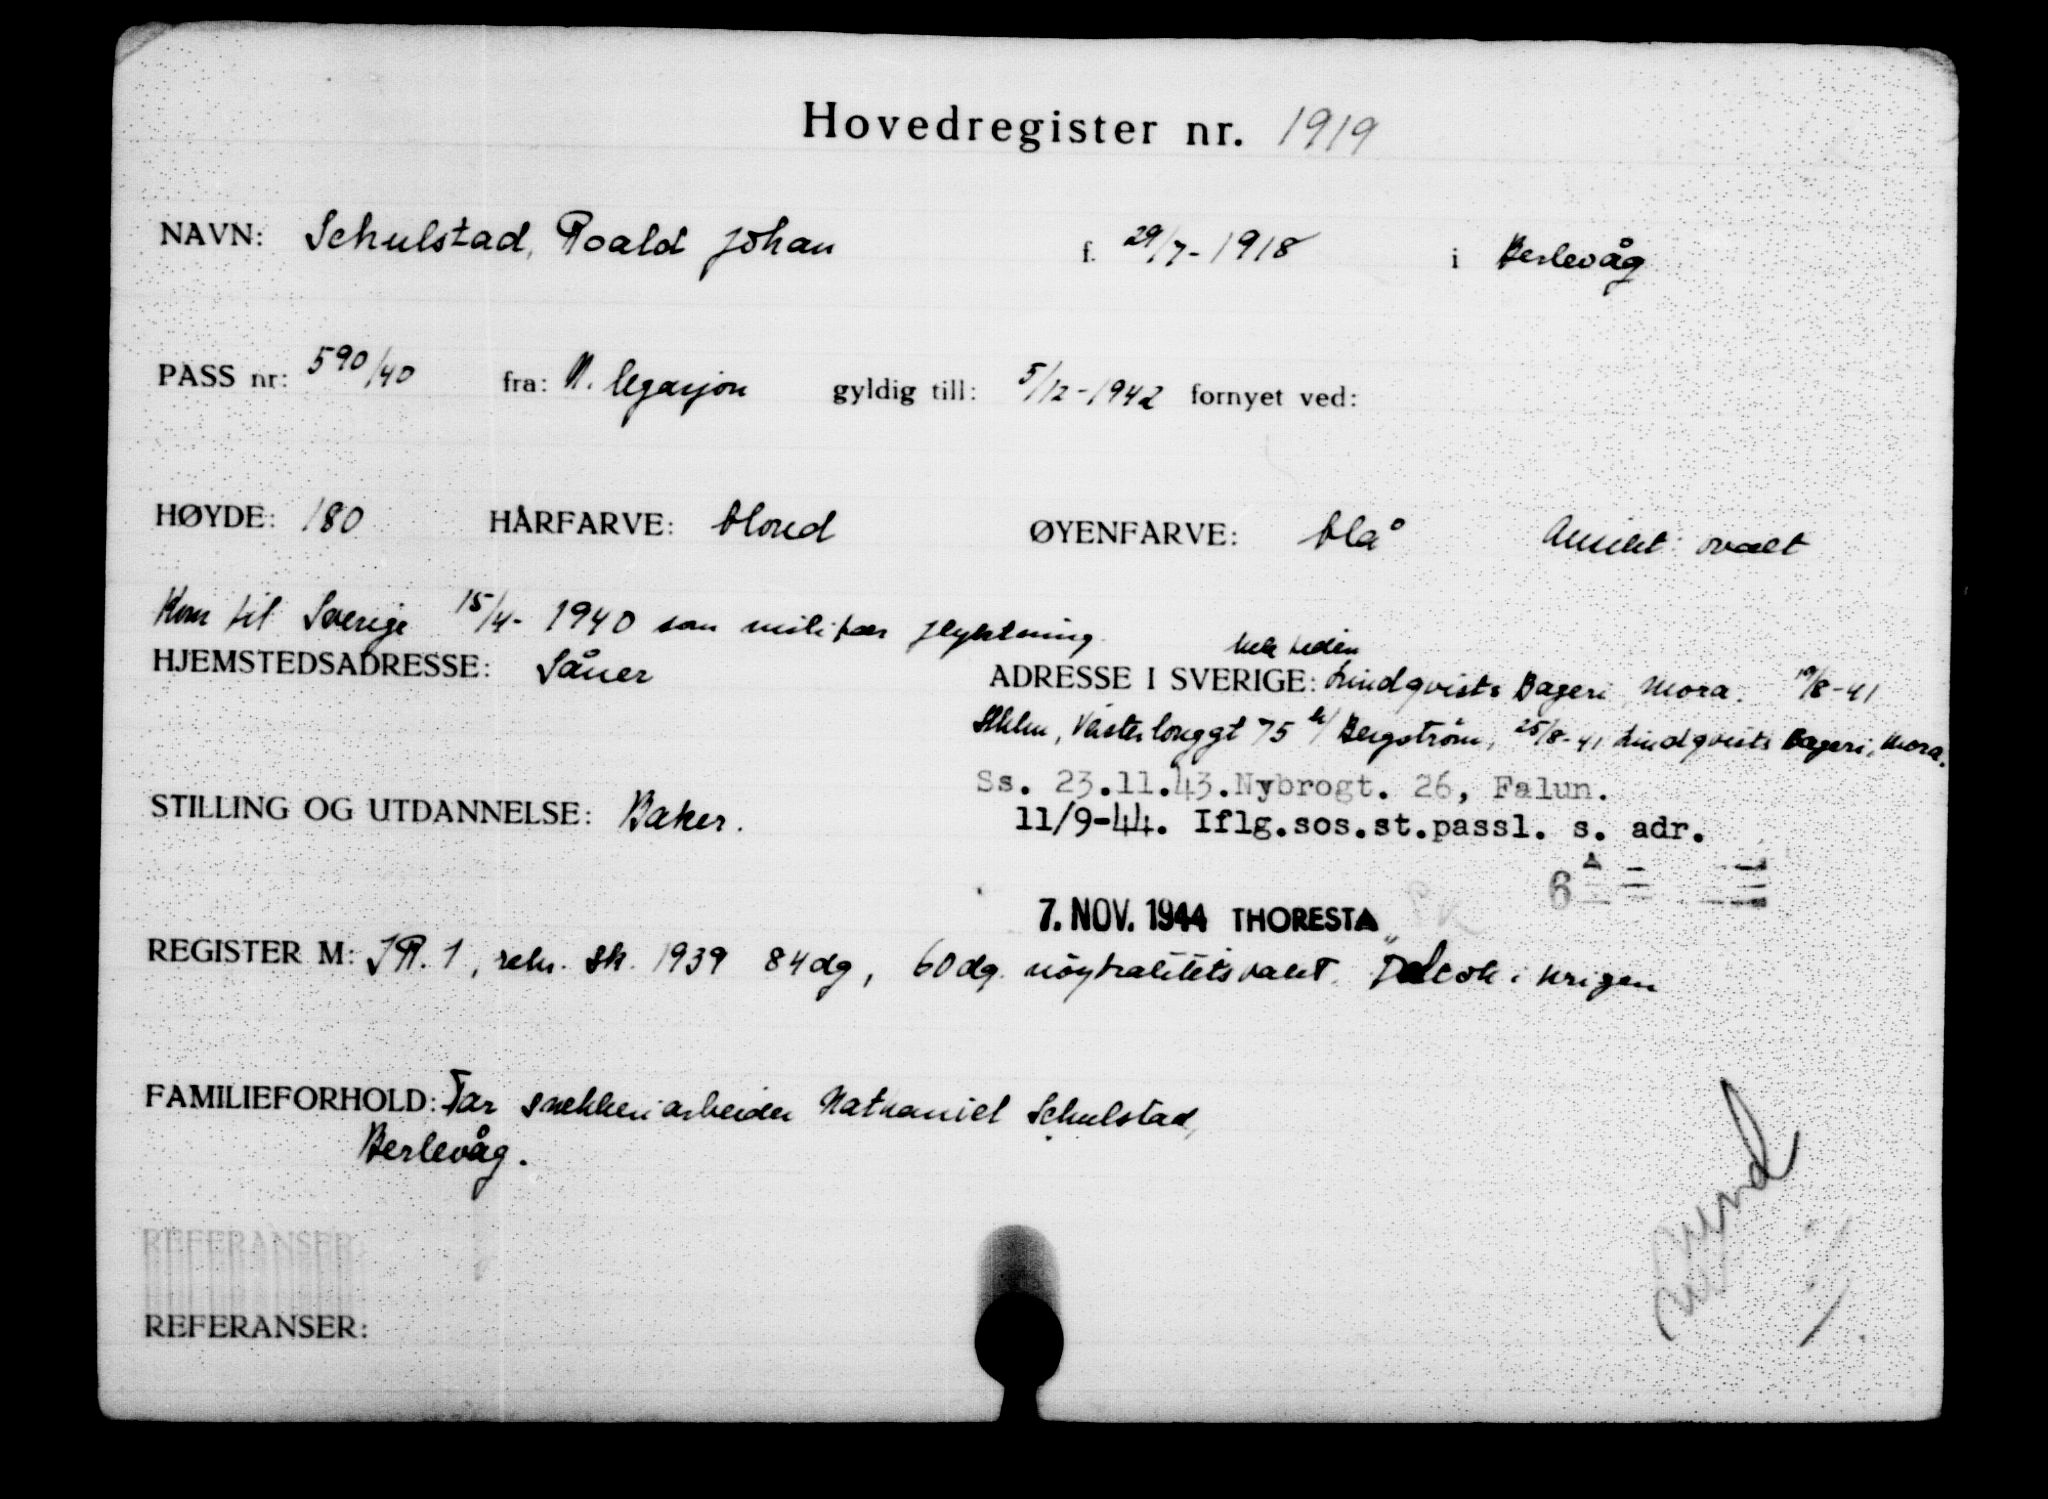 Hovedregister nr. 1919
NAVN: Schulstad, Roald Johan f. 29/7-1918 i Berlevåg
PASS nr: 590/40 fra: N. legasjon gyldig till: 5/12-1942 fornyet ved:
HØYDE: 180 HÅRFARVE: blond ØYENFARVE: blå Ansikt: ovalt
Kom til Sverige 15/4-1940 som militær flyktning
hele tiden
HJEMSTEDSADRESSE: Såner ADRESSE I SVERIGE: Lindqvists Bageri, Mora. 19/8-41
Sthlm, Västerlonggt 75 b/ Bergström, 25/8-41 Lindqvists Bageri, Mora.
Ss. 23.11.43. Nybrogt. 26, Falun.
STILLING OG UTDANNELSE: Baker. 11/9-44. Iflg.sos.st.passl. s. adr.
6
7. NOV. 1944 THORESTA
REGISTER M: IR. 1, rekr. sk. 1939 84dg, 60dg. nøytralitetsvakt. Deltok i krigen
FAMILIEFORHOLD: Far snekkeriarbeider Nathaniel Schulstad,
Berlevåg.
REFERANSER:
REFERANSER: